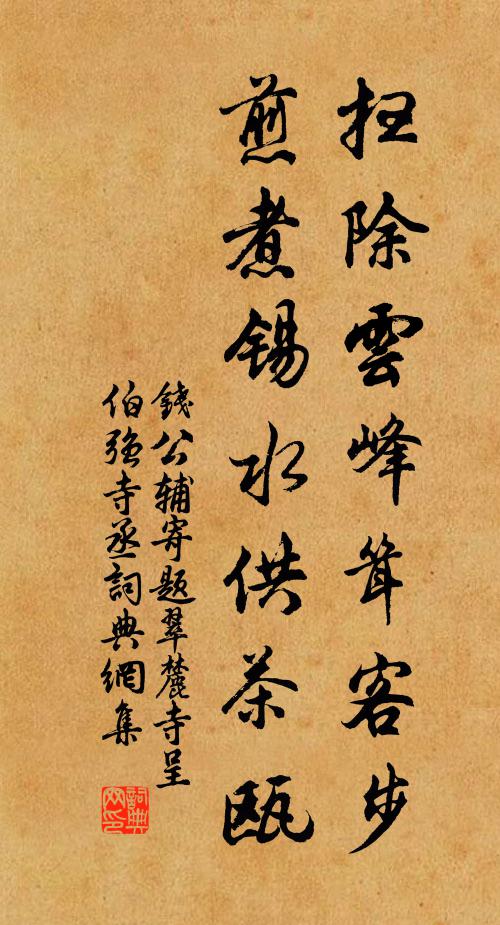 扫除雲峰耸客步
煎煮锡水供茶瓯
錢公辅寄题翠麓寺呈
伯强寺丞詞典網集
詞典
网印